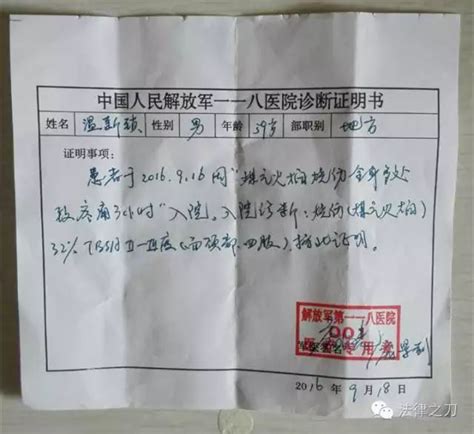 中国人民解放军一一八医院诊断证明书
姓名 温新颖 性别 男 年龄 39岁 部职别 地方
证明事项：
患者于2016.9.16因“煤气火焰烧伤全身多处
致疼痛3小时”入院。入院诊断：烧伤（煤气火焰）
32% TBSA Ⅱ-Ⅲ度（面颈部、四肢），特此证明。
解放军第一一八医院
001
专用章
2016年9月18日
法律之刀